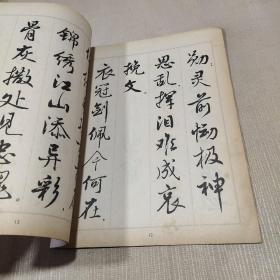 勋灵前恸极神
思乱挥泪难成哀
挽文
衣冠剑佩今何在
12
锦绣江山添异彩
骨灰撒处见忠
13